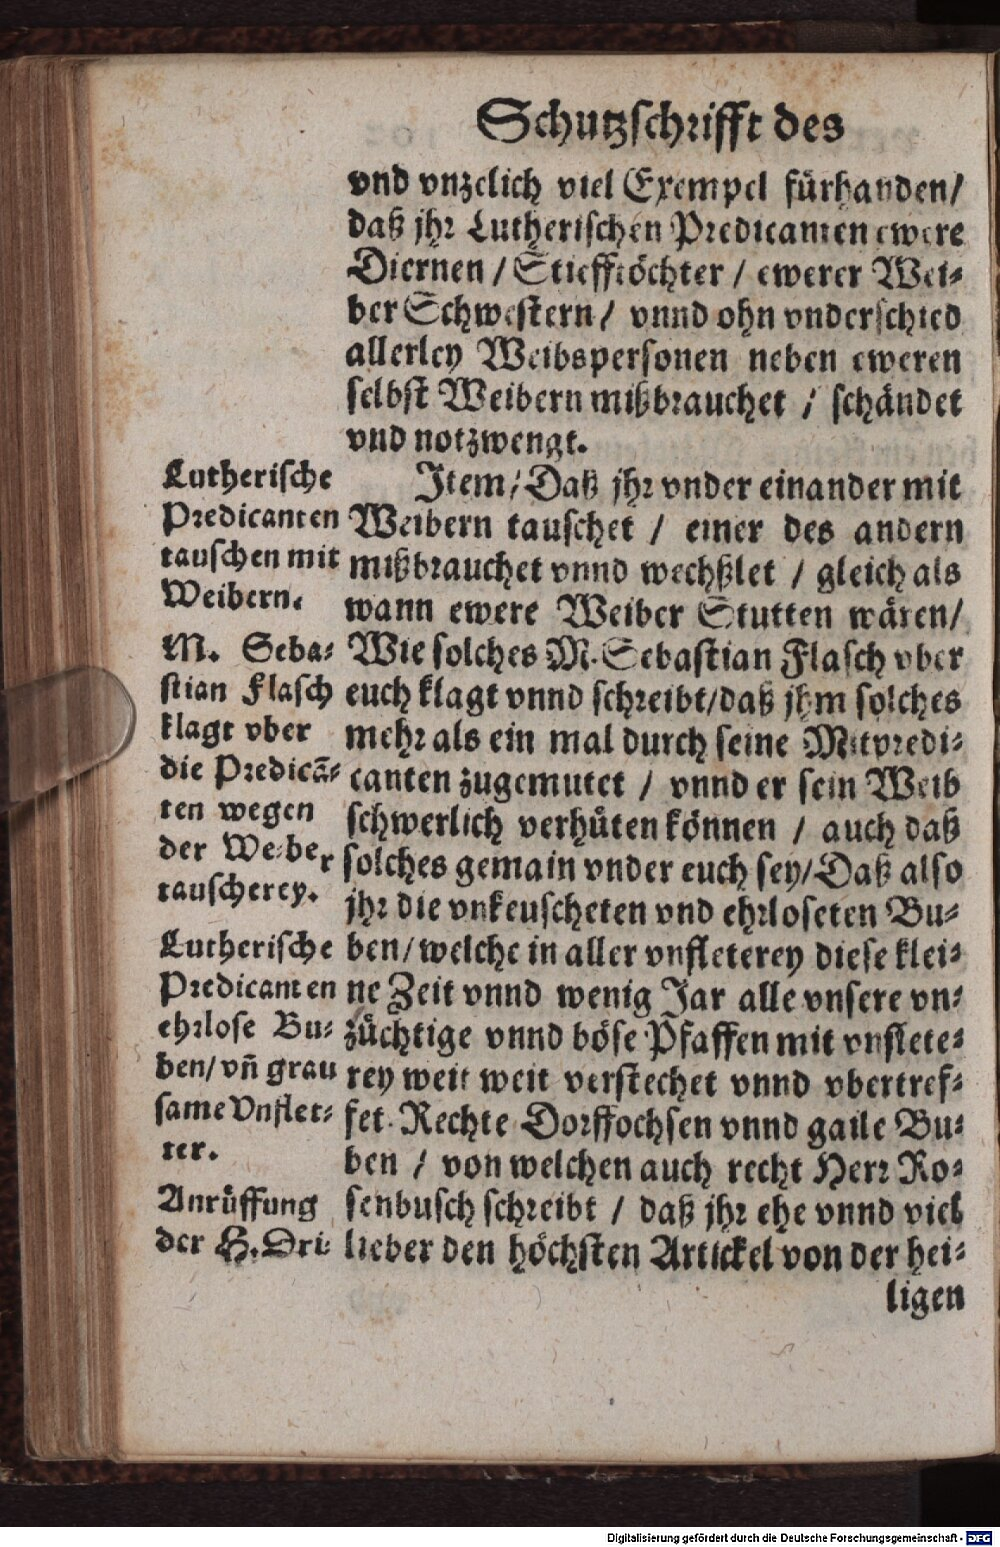 Schutzschrifft des
vnd vnzelich viel Exempel fürhanden/
daß jhr Lutherischen Predicanten ewere
Diernen / Stieffröchter / ewerer Wei-
ber Schwestern / vnnd ohn vnderschied
allerley Weibspersonen neben eweren
selbst Weibern mißbrauchet / schändet
vnd notzwengt.
Item / Daß jhr vnder einander mit
Weibern tauschet / einer des andern
mißbrauchet vnnd wechßlet / gleich als
wann ewere Weiber Stutten wären /
Wie solches M. Sebastian Flasch vber
euch klagt vnnd schreibt / daß jhm solches
mehr als ein mal durch seine Mitpredi-
canten zugemutet / vnnd er sein Weib
schwerlich verhüten können / auch daß
solches gemain vnder euch sey / Daß also
jhr die vnkeuscheten vnd ehrloseten Bu-
ben / welche in aller vnfleterey diese klei-
ne Zeit vnnd wenig Jar alle vnsere vn-
züchtige vnnd böse Pfaffen mit vnflete-
rey weit weit verstechet vnnd vbertref-
fet. Rechte Dorffochsen vnnd gaile Bu-
ben / von welchen auch recht Herr Ro-
senbusch schreibt / daß jhr ehe vnnd viel
lieber den höchsten Artickel von der hei-
ligen
Lutherische
Predicanten
tauschen mit
Weibern.
M. Seba-
stian Flasch
klagt vber
die Predicā-
ten wegen
der Weiber
tauscherey.
Lutherische
Predicanten
ehrlose Bu-
ben / vñ grau
same Vnflet-
ter.
Anrüffung
der H. Dri-
Digitalisierung gefördert durch die Deutsche Forschungsgemeinschaft - DFG